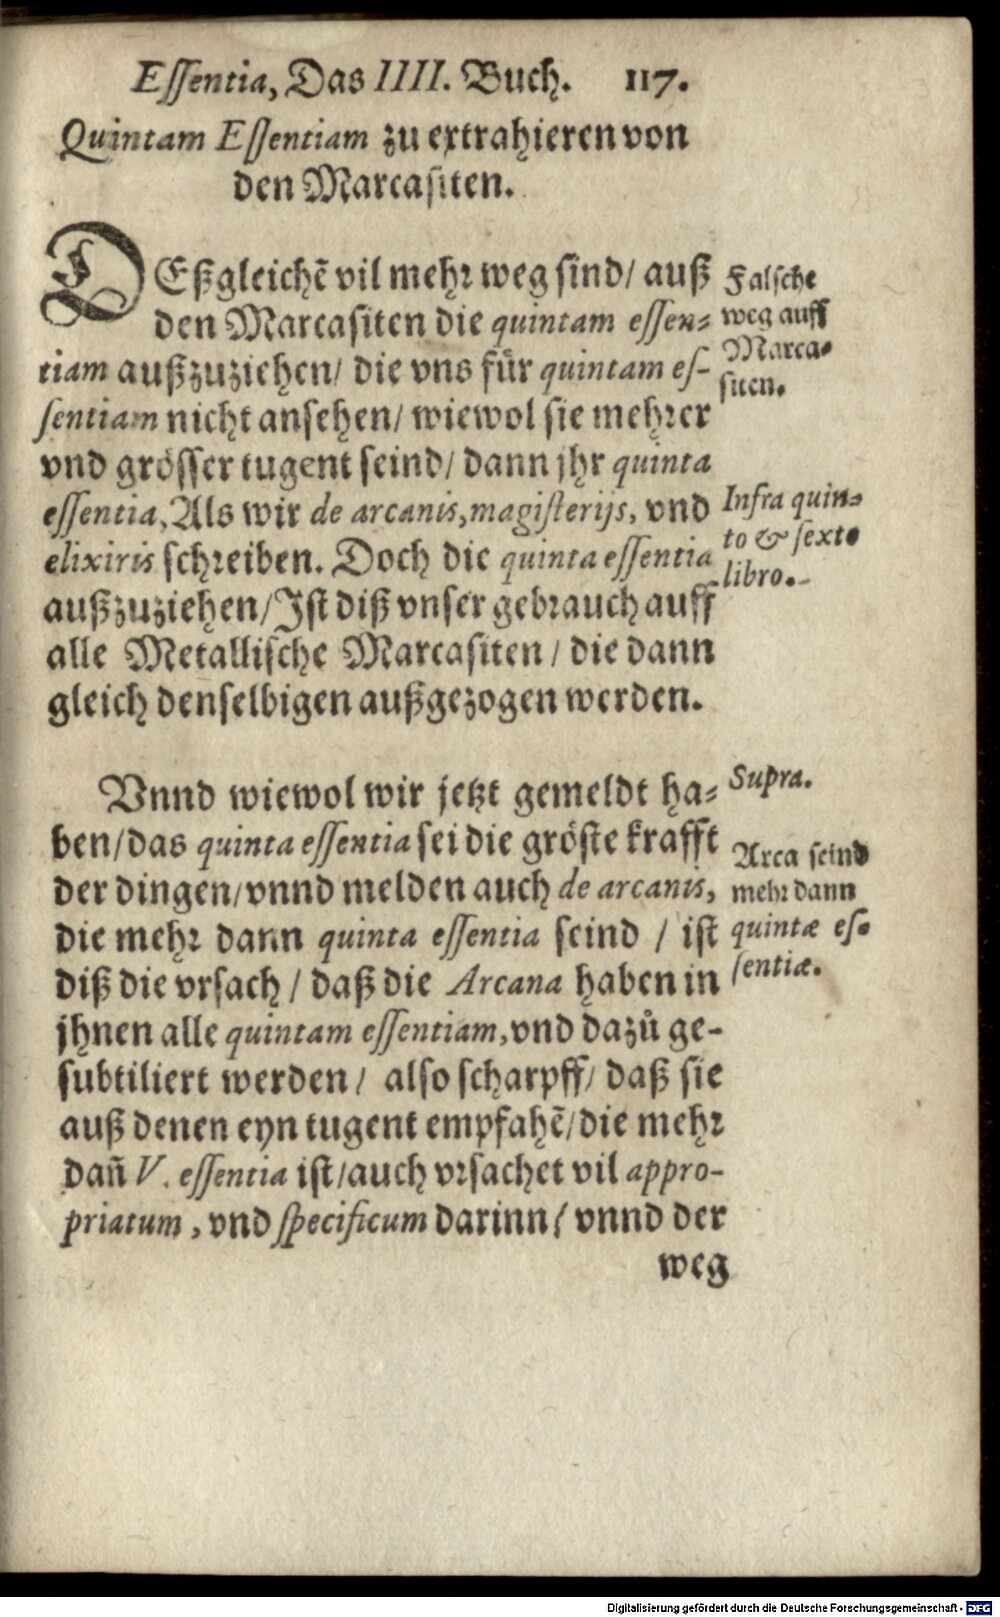 Essentia, Das IIII. Buch. 117.
Quintam Essentiam zu extrahieren von
den Marcasiten.
DEßgleichē vil mehr weg sind/ auß
den Marcasiten die quintam essen-
tiam außzuziehen/ die vns für quintam es-
sentiam nicht ansehen/ wiewol sie mehrer
vnd grösser tugent seind/ dann jhr quinta
essentia, Als wir de arcanis, magisterijs, vnd
elixiris schreiben. Doch die quinta essentia
außzuziehen/ Ist diß vnser gebrauch auff
alle Metallische Marcasiten / die dann
gleich denselbigen außgezogen werden.
Falsche
weg auff
Marca-
siten.
Infra quin-
to & sexto
libro.
Vnnd wiewol wir jetzt gemeldt ha-
ben/das quinta essentia sei die gröste krafft
der dingen/vnnd melden auch de arcanis,
die mehr dann quinta essentia seind / ist
diß die vrsach / daß die Arcana haben in
jhnen alle quintam essentiam, vnd dazů ge-
subtiliert werden / also scharpff/ daß sie
auß denen eyn tugent empfahē/die mehr
dañ V. essentia ist/auch vrsachet vil appro-
priatum, vnd specificum darinn/ vnnd der
weg
Supra.
Arca seind
mehr dann
quintæ es-
sentiæ.
Digitalisierung gefördert durch die Deutsche Forschungsgemeinschaft - DFG